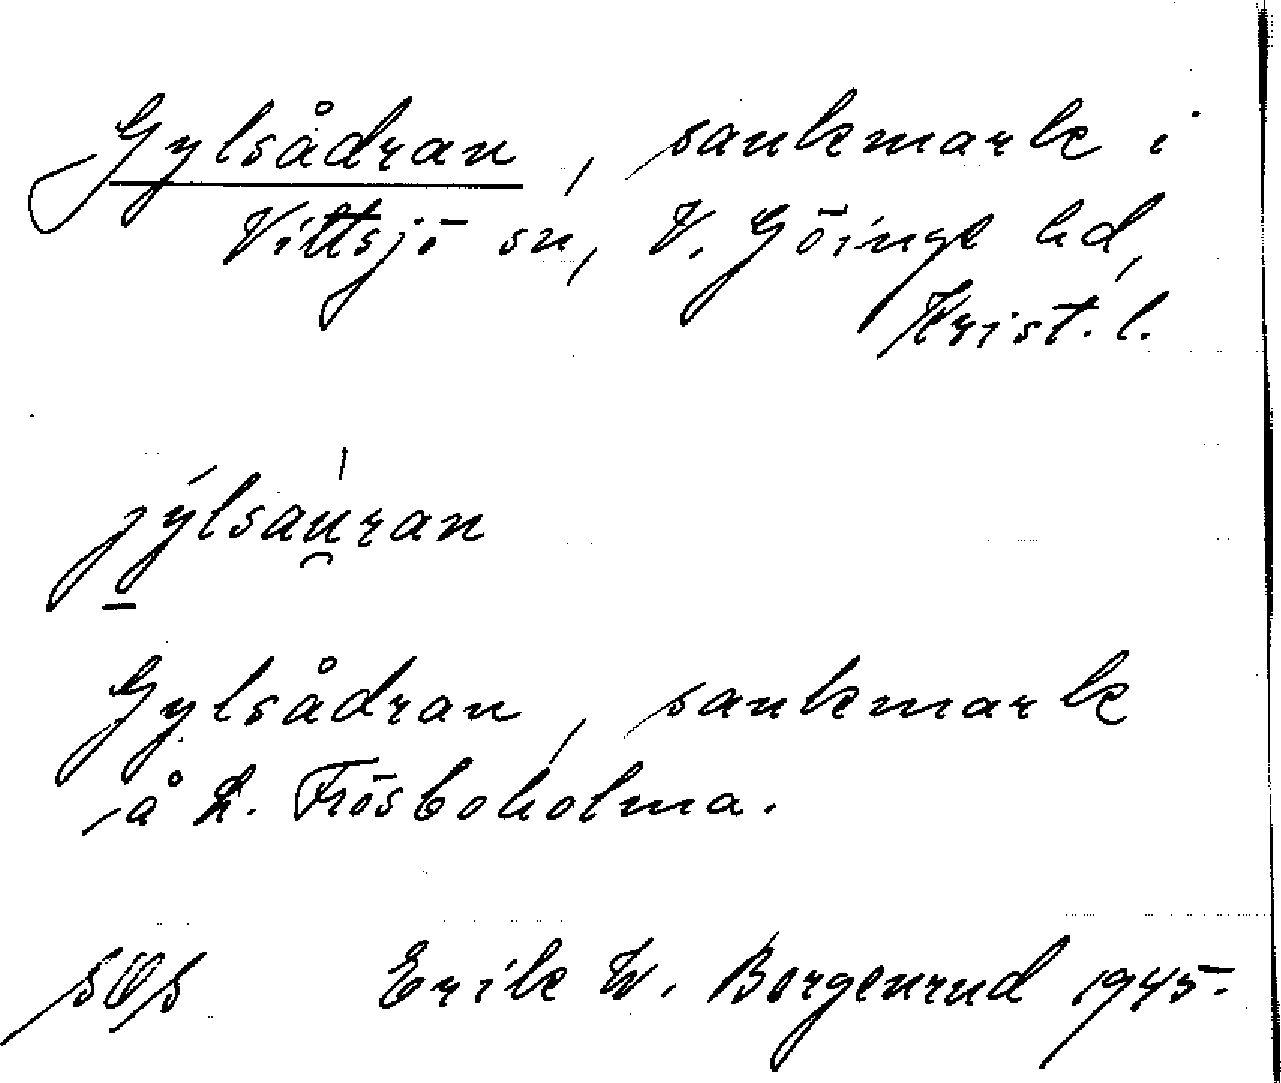 Gylsådran, sankmark i
Vittsjö sn, V. Göinge hd,
Krist. l.
jýlsau̯ran
Gylsådran, sankmark
å L. Frösboholma.
sOs Erik W. Borgenrud 1945.